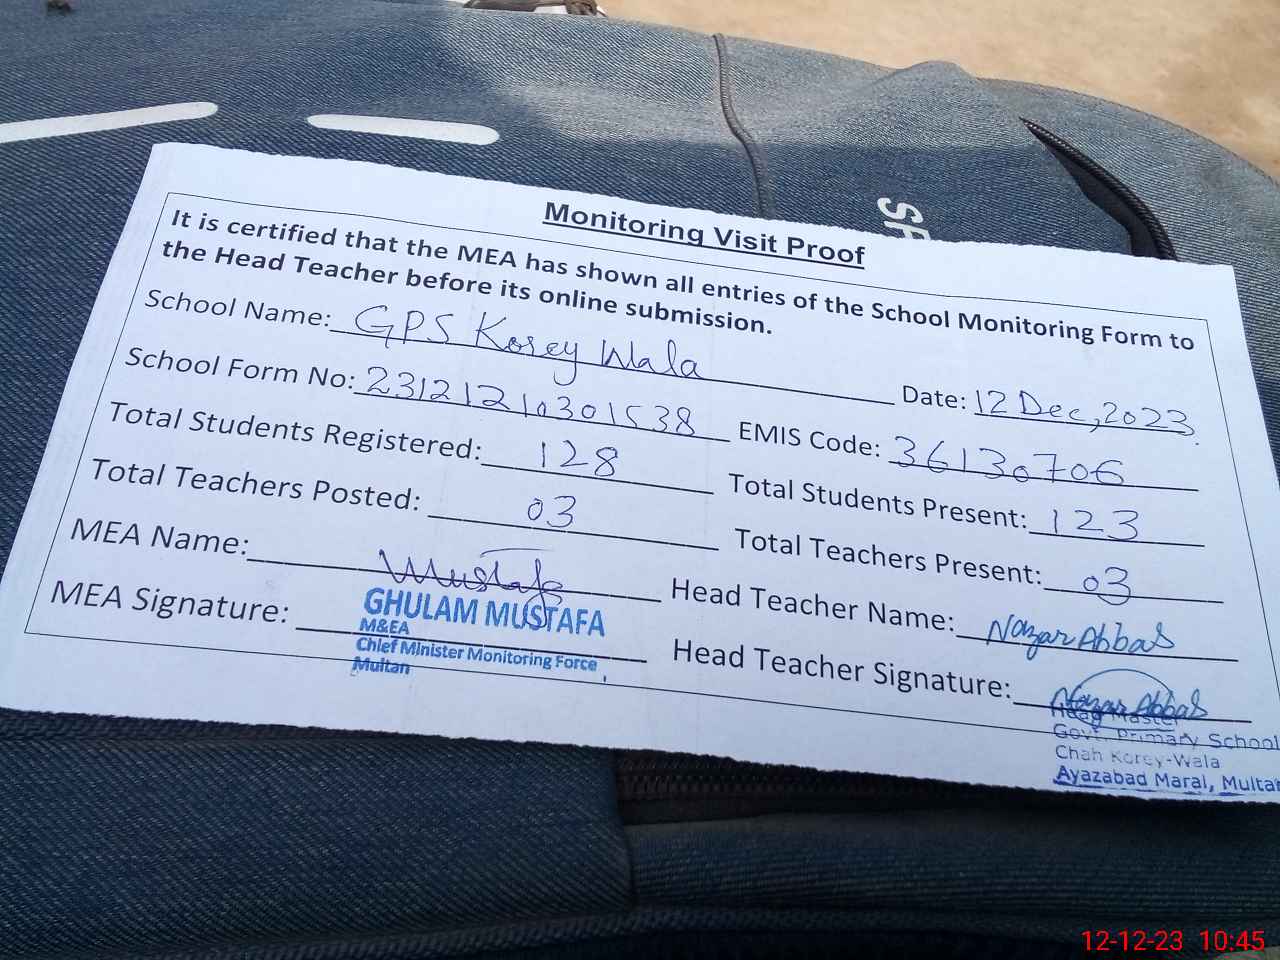 SP
Monitoring Visit Proof
It is certified that the MEA has shown all entries of the School Monitoring Form to
the Head Teacher before its online submission.
School Name: GPS Korey Wala Date: 12 Dec, 2023.
School Form No: 23121210301538 EMIS Code: 36130706
Total Students Registered: 128 Total Students Present: 123
Total Teachers Posted: 03 Total Teachers Present: 03
MEA Name: Mustafa Head Teacher Name: Nazar Abbas
MEA Signature: Head Teacher Signature: Nazar Abbas
GHULAM MUSTAFA
M&EA
Chief Minister Monitoring Force
Multan
Head Master
Govt. Primary School
Chah Korey-Wala
Ayazabad Maral, Multan
12-12-23 10:45